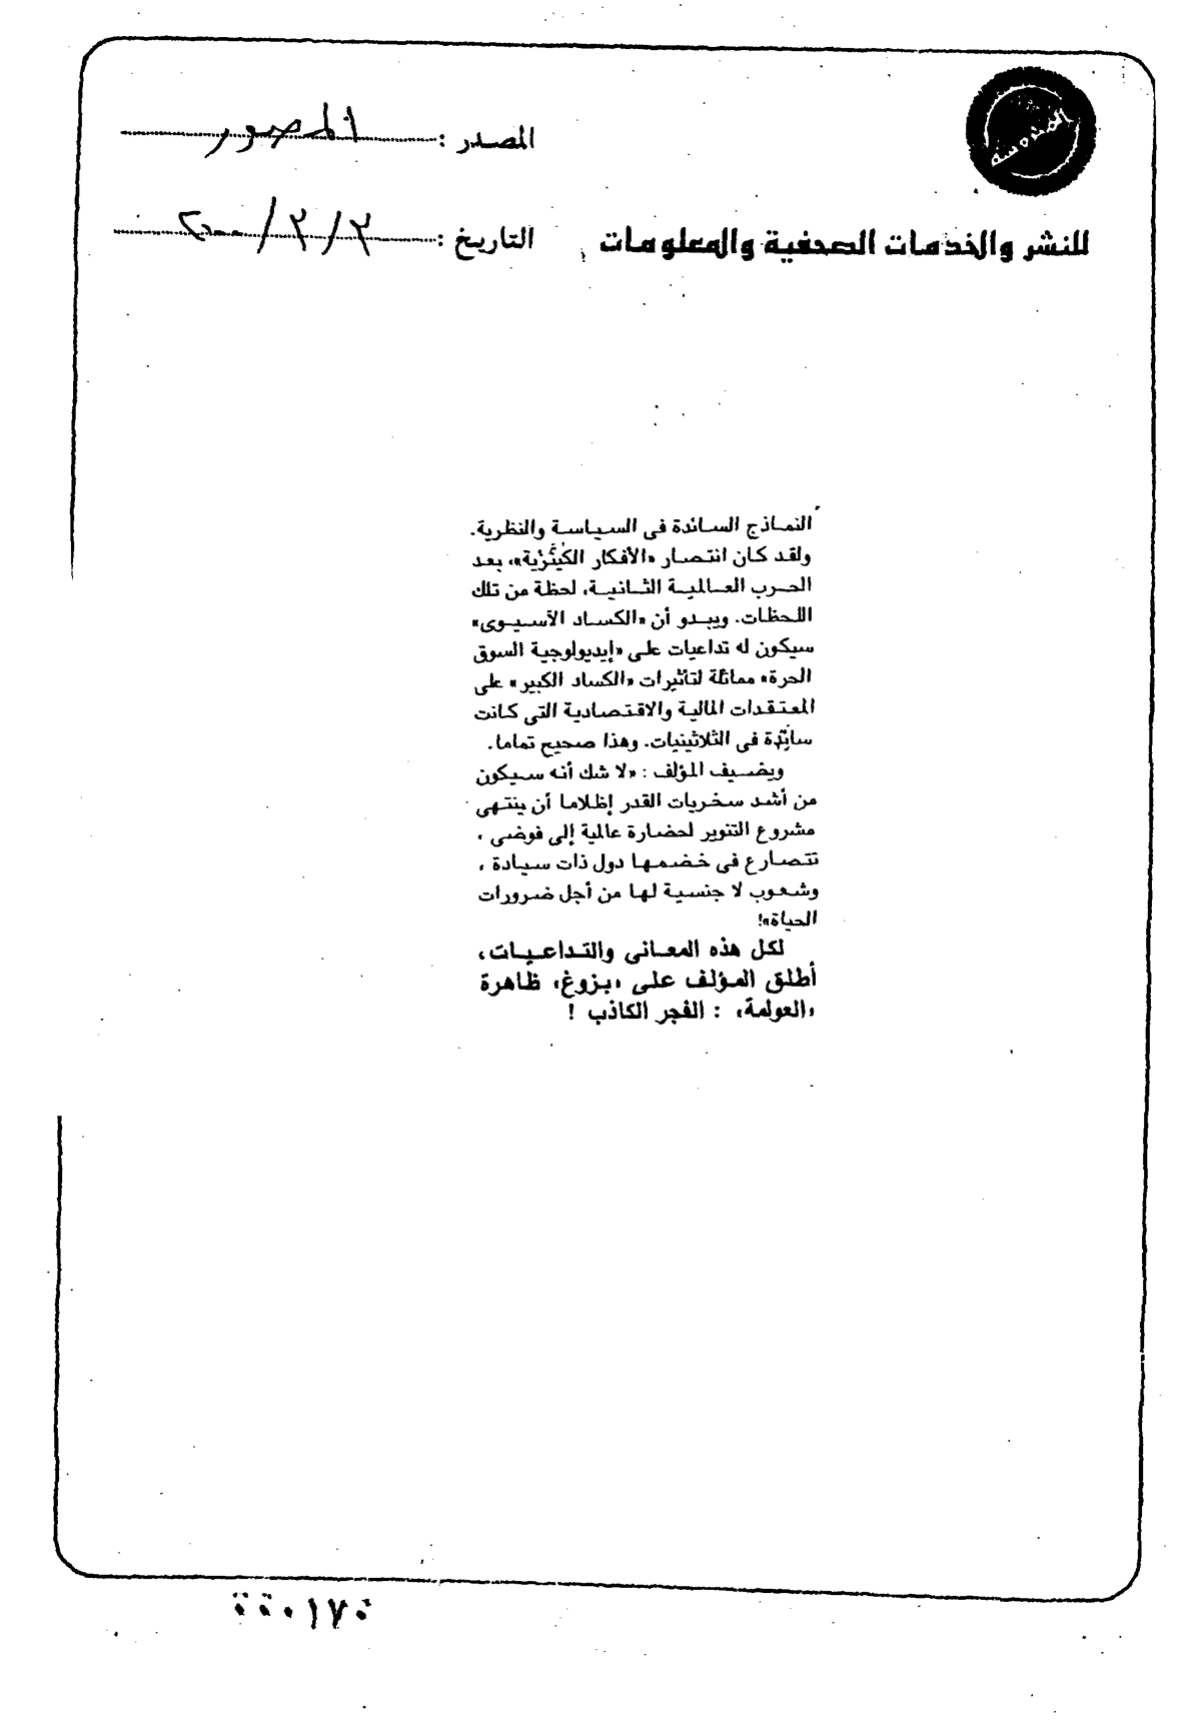 المصدر : المصور
للنشر والخدمات الصحفية والمعلومات
التاريخ : ٣/٣/٢٠٠٠
النماذج السائدة فى السياسة والنظرية.
ولقد كان انتصار «الأفكار الكينزية»، بعد
الحرب العالمية الثانية، لحظة من تلك
اللحظات. ويبدو أن «الكساد الآسيوى»
سيكون له تداعيات على «إيديولوجية السوق
الحرة» مماثلة لتأثيرات «الكساد الكبير» على
المعتقدات المالية والاقتصادية التى كانت
سائدة فى الثلاثينيات. وهذا صحيح تماما.
ويضيف المؤلف : «لا شك أنه سيكون
من أشد سخريات القدر إظلاما أن ينتهى
مشروع التنوير لحضارة عالمية إلى فوضى ،
تتصارع فى خضمها دول ذات سيادة ،
وشعوب لا جنسية لها من أجل ضرورات
الحياة»!
لكل هذه المعانى والتداعيات،
أطلق المؤلف على «بزوغ» ظاهرة
«العولمة» : الفجر الكاذب !